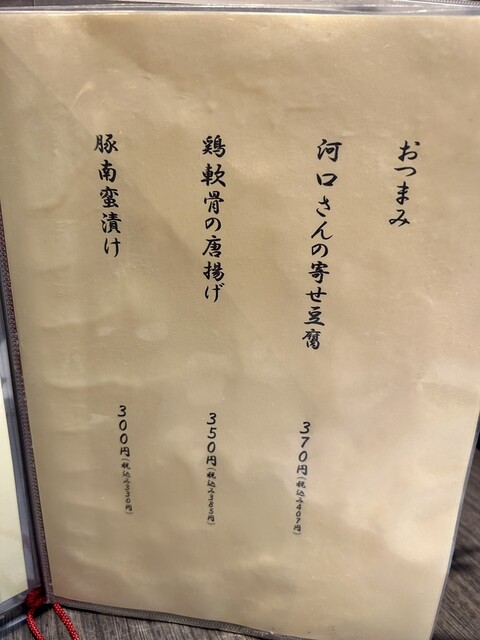 おつまみ
河口さんの寄せ豆腐
370円(税込み407円)
鶏軟骨の唐揚げ
350円(税込み385円)
豚南蛮漬け
300円(税込み330円)